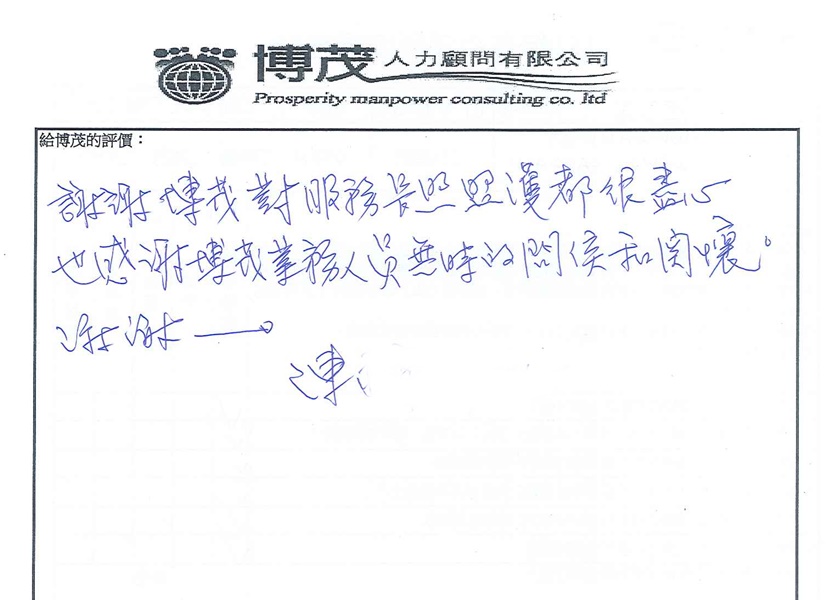 博茂人力顧問有限公司
Prosperity manpower consulting co. ltd
給博茂的評價：
謝謝博茂對服務長照照護都很盡心
也感謝博茂業務人員無時的問侯和関懷。
謝謝
連